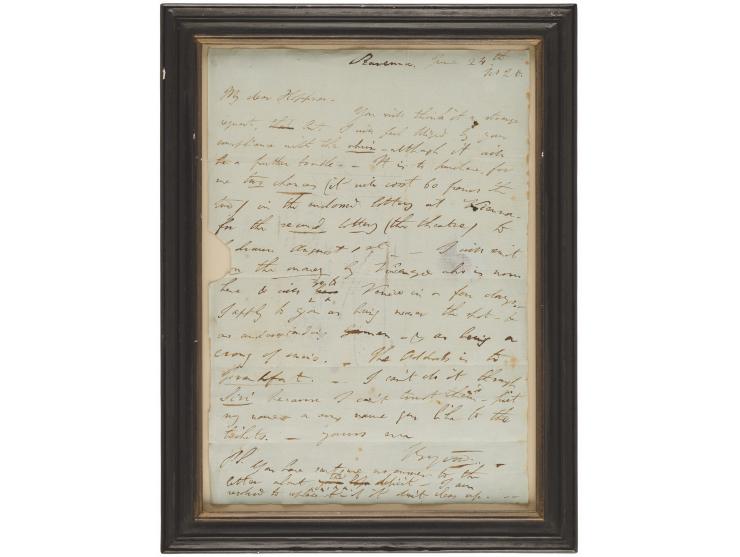 Ravenna. June 24th
1820.
My dear Hoppner -
You will think it a strange
request, but I will feel obliged by your
compliance with the whim - although it will
be a further trouble - - It is to purchase for
me two chances (it will cost 60 francs the
two) in the enclosed lottery at Vienna -
for the second lottery (the theatre) to
be drawn August 1st - - I will remit
you the money by who is now
here & will be Venice in a few days -
I apply to you as being nearer the spot - &
as understanding German - & as being a
crony of mine. - The Address is to
Frankfort. - I can't do it through
Siri because I can't trust them - put
my name or any name you like to the
tickets. - yours ever
Byron. -
P.S. You have sent me no answer to the
letter about the deposit - I am
resolved to replace it if it don't clear up. - -